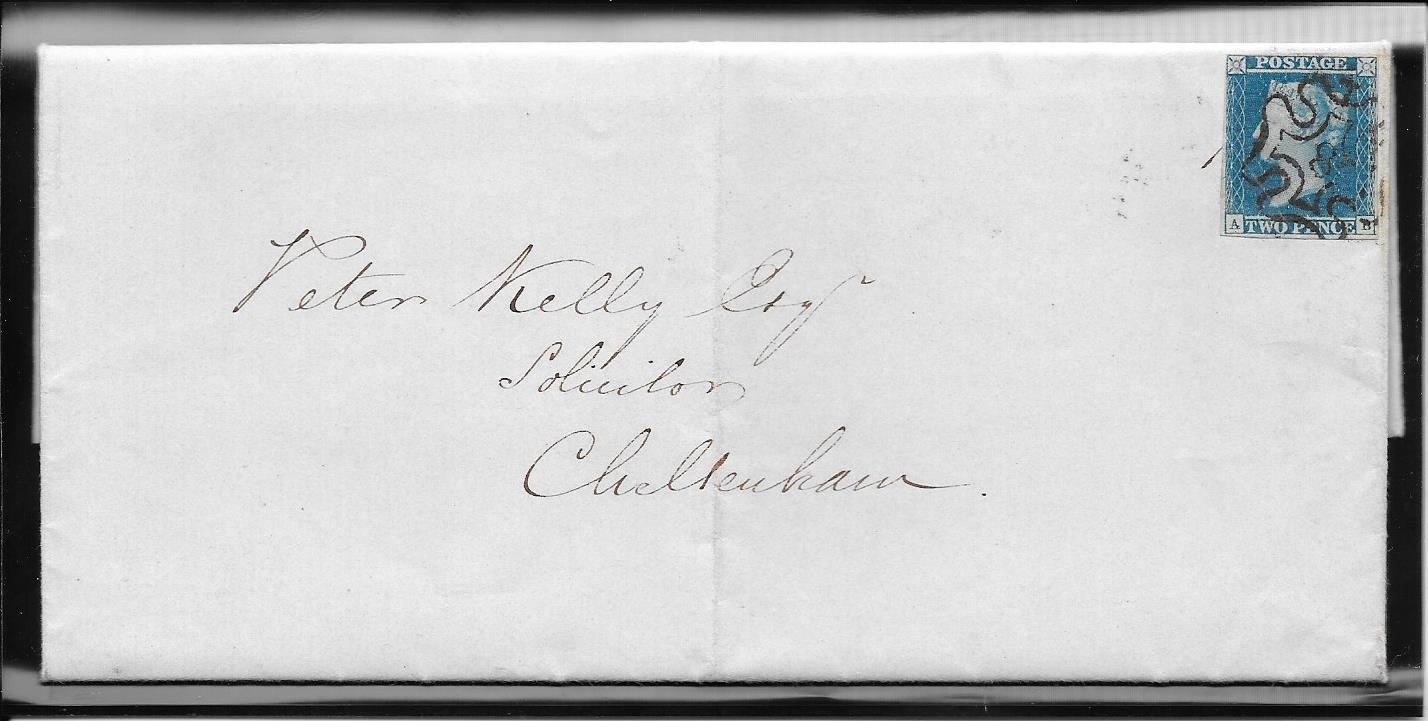 POSTAGE
A TWO PENCE B
Peter Kelly Esqr
Solicitor
Cheltenham.